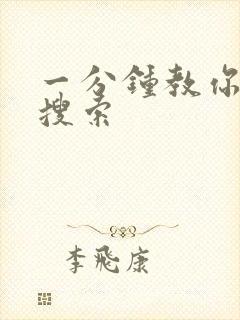 一分鍾教你
搜索
李飛康